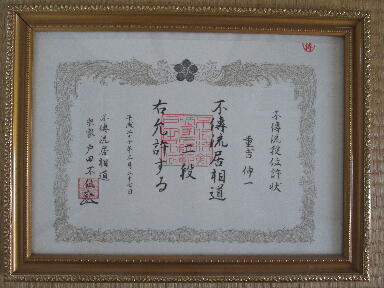 不傳流段位許状
重吉伸一
不傳流居相道
段
右允許する
平成二十年二月二十七日
不傳流居相道
宗家 戸田不仙